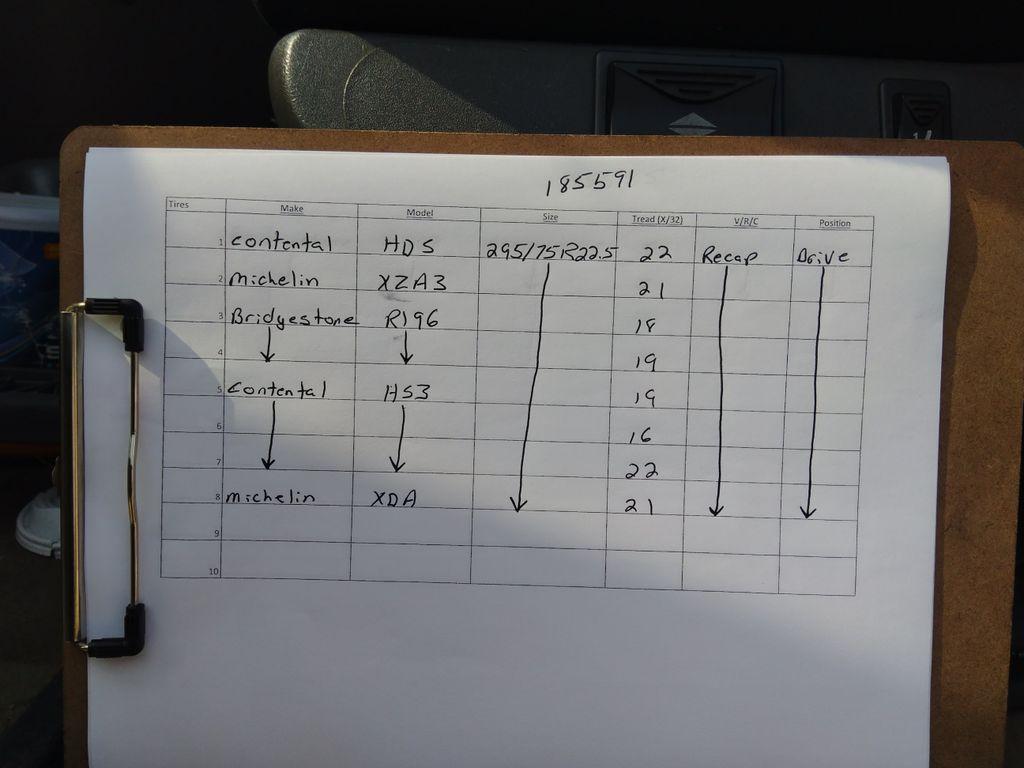 185591
Tires Make Model Size Tread (X/32) V/R/C Position
1 Contental HDS 295/75R22.5 22 Recap Drive
2 Michelin XZA3 21
3 Bridgestone R196 18
4 19
5 Contental HS3 19
6 16
7 22
8 Michelin XDA 21
9
10